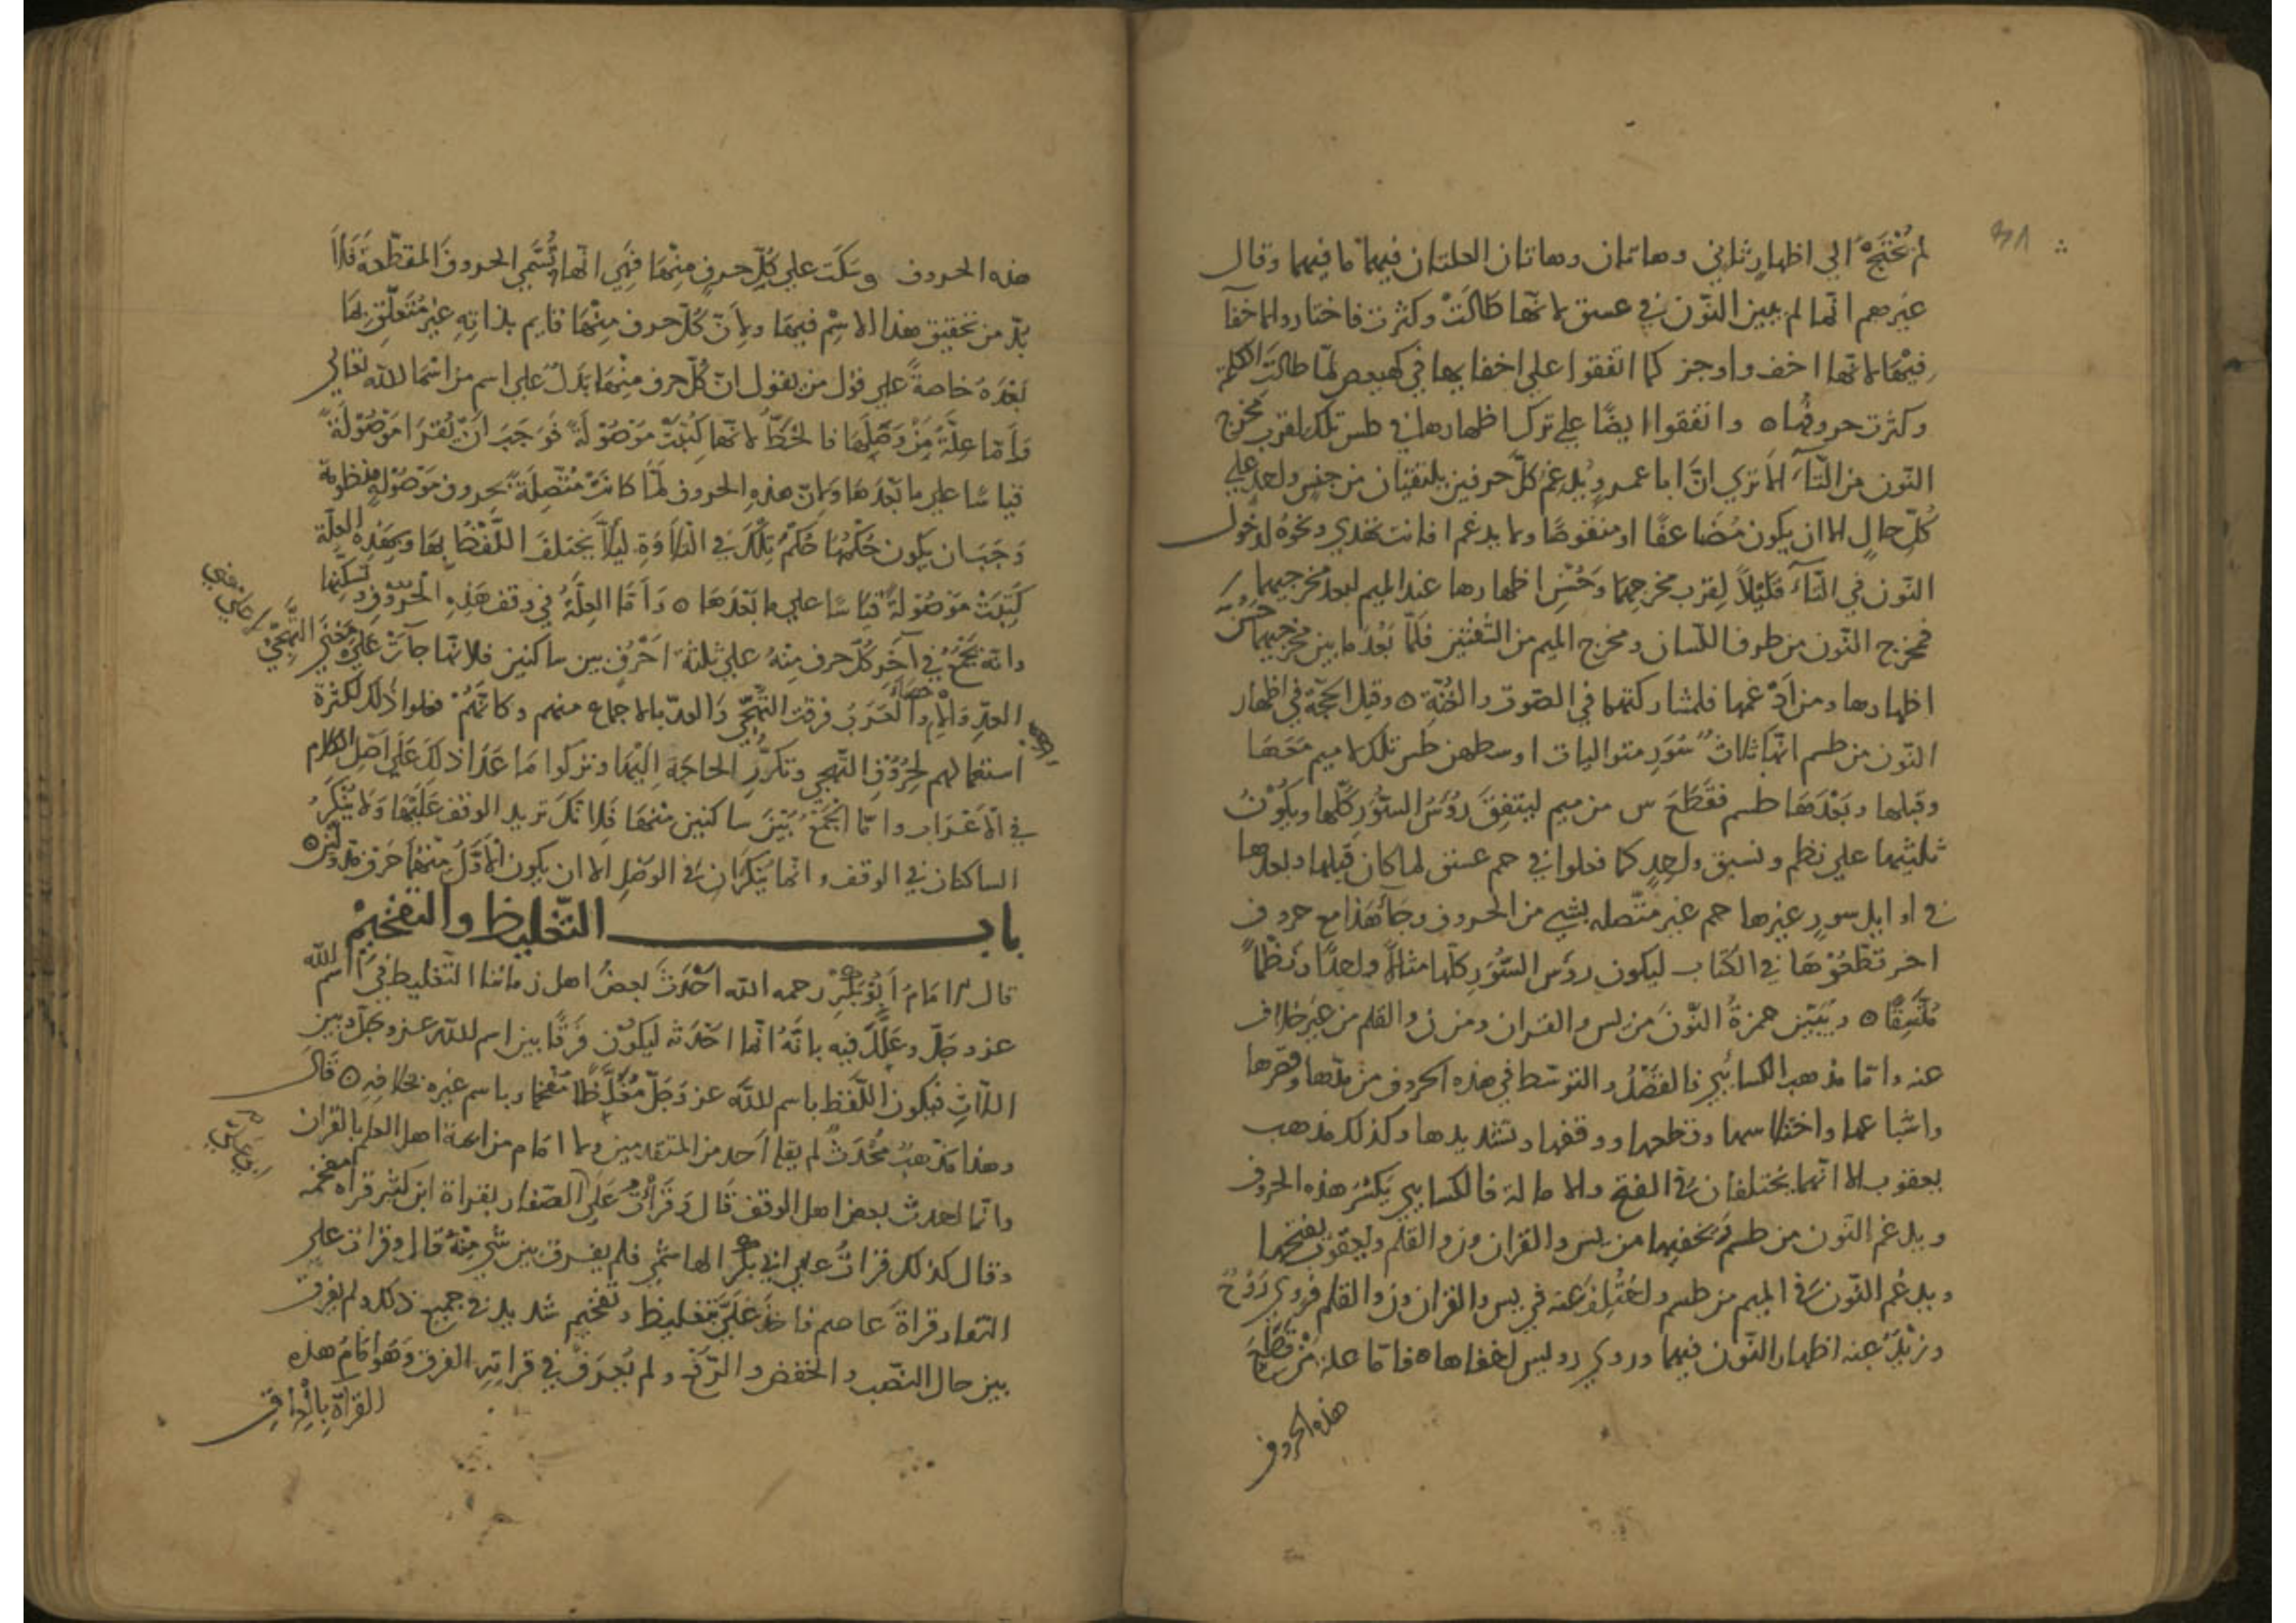 لم نحتج الى اظهار ثاني وهاتان وهاتان العلتان فيهما ما فيهما وقال
غيرهم انما لم يبين النون في عسق لانها طالت وكثرت فاختاروا اخفآ
فيها لانها اخف واوجز كما اتفقوا على اخفايها في كهيعص لما طالت الكلمة
وكثرت حروفها ٥ واتفقوا ايضًا على ترك اظهارها في طس تلك لقرب مخرج
النون من التآء الا ترى انّ ابا عمرو يدغم كلّ حرفين يلتقيان من جنس واحد على
كلّ حالٍ الا ان يكون مضاعفًا او منقوصًا ولا يدغم افانت تهدي ونحوه لدخول
النون في التآء قليلاً لقرب مخرجهما وحسن اظهارها عند الميم لبعد مخرجيهما
فمخرج النون من طرف اللسان ومخرج الميم من الشفتين فلمّا بعد ما بين مخرجيهما حسن
اظهارها ومن ادغمها فلمشاركتهما في الصوت والغنة ٥ وقيل الحجّة في اظهار
النون من طسم انها ثلاث سور متواليات اوسطهن طس تلك لا ميم معها
وقبلها وبعدها طسم فقطع س من ميم ليتفق رؤس السّور كلها ويكون
ثلثيها على نظم ونسق واحدٍ كما فعلوا في حم عسق لما كان قبلها وبعدها
في اوايل سورٍ غيرها حم غير متّصله بشي من الحروف وجآء هذا مع حروف
اخر قطعوها في الكتاب ليكون رؤس السّور كلها مثالاً واحدًا ونظماً
متسقًا ٥ ويبيّن حمزة النّون من يس والقران ومن ن والقلم من غير خلاف
عنه واما مذهب الكسائي فالفصل والتوسّط في هذه الحروف من مدّها وقصرها
واشباعها واختلاسها وقطعها ووقفها وتشديدها وكذلك مذهب
يعقوب الا انهما يختلفان في الفتح والامالة فالكسايي يكسر هذه الحروف
ويدغم النون من طسم ويخفيها من يس والقران ون والقلم ويعقوب يفتحها
ويدغم النّون في الميم من طسم واختلف عنه في يس والقران ون والقلم فروى روح
وزيد عنه اظهار النون فيهما وروى رويس اخفاها ٥ فاما علة من قطع
هذه الحروف
هذه الحروف وسكت على كلّ حرفٍ منها فهي انها تسمى الحروف المقطّعة فلا
بدّ من تحقيق هذا الاسم فيها ولانّ كلّ حرف منها قايم بذاته غير متعلّق بما
بعده خاصةً على قول من يقول ان كلّ حرف منها يدل على اسم من اسما الله تعالى
وامّا علّة من وصلها فالخطّ لانها كتبت موصولة فوجب ان تقرا موصولة
قياسًا على ما بعدها ولان هذه الحروف لمّا كانت متّصلة بحروف موصولة منظومة
وجب ان يكون حكمها حكم تلك في التلاوة ليلاّ يختلف اللّفظ بها وبهذه العلّة
كتبت موصولةً قياسًا على ما بعدها ٥ وامّا العلّة في وقف هذه الحروف وتسكينها
وانه يجمع في آخر كلّ حرف منه على ثلثة احرف بين ساكنين فلانها جآت على معنى التّهجّي
العدّ والعرب فرقت التّهجّي والعدّ بالاجماع منهم وكانهم فعلوا ذلك لكثرة
استعمالهم لحروف التهجي وتكرّر الحاجة اليها وتركوا ما عدا ذلك على اصل الكلام
في الاعراب وانما الجمع بين ساكنين منها فلانك تريد الوقف عليها ولا ينكر
الساكنان في الوقف وانما ينكران في الوصل الا ان يكون الاوّل منهما حرف مد ولين ٥
باب التّغليظ والتفخيم
قال الامام ابو بكر رحمه الله احدث بعض اهل زماننا التغليظ في اسم الله
عز وجلّ وعلّل فيه بانّه انّما احدثه ليكون فرقًا بين اسم الله عز وجلّ وبين
اللات فيكون اللّفظ باسم الله عز وجلّ مغلّظا مفخما وباسم غيره بخلافه ٥ قال
وهذا مذهب محدث لم يقله احد من المتقدمين ولا امام من ايمة اهل العلم بالقران
وانما احدث بعض اهل الوقف قال وقرأت على الصفار بقراة ابن كثير فقراه مفخمه
وقال كذلك قرات على ابي بكر الهاشمي فلم يفرق بين شي منه قال وقرات على
النقار قراة عاصم فاخذ عليّ بتغليظ وتفخيم شديد في جميع ذلك ولم يفرق
بين حال النّصب والخفض والرّفع ولم يعرف في قراته الفرق وهو امام هذه
القراة بالعراق